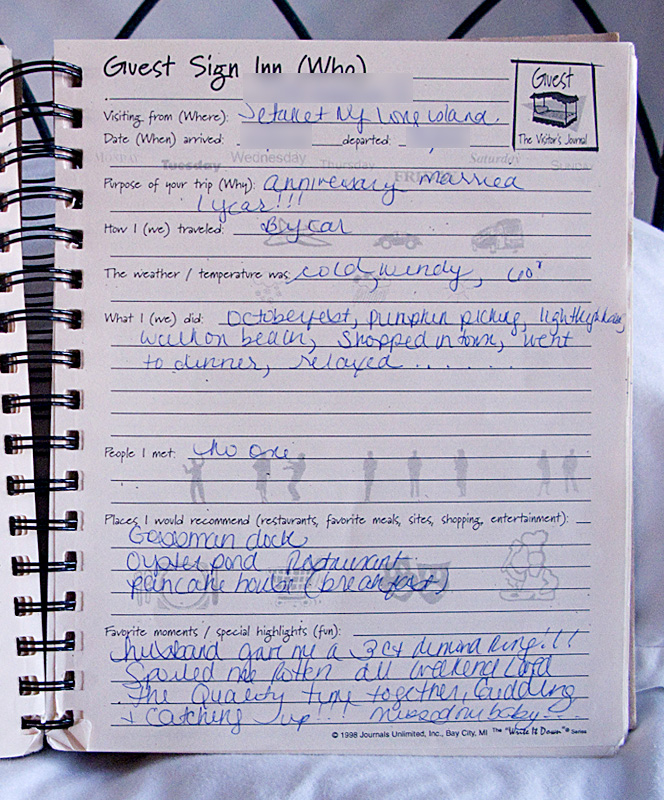 Guest Sign Inn (Who)
Guest
The Visitor's Journal
Visiting from (Where): Setauket Ny Long island.
Date (When) arrived: departed:
Monday Tuesday Wednesday Thursday FRIDAY Saturday SUNDAY
Purpose of your trip (Why): anniversary married
1 year!!!
How I (we) traveled: By car
The weather / temperature was: cold, windy, 60°
What I (we) did: Octoberfest, pumpkin picking,
walk on beach, shopped in town, went
to dinner, relaxed.......
People I met: no one
Places I would recommend (restaurants, favorite meals, sites, shopping, entertainment):
dock
Oyster pond Restaurant
pancake house (breakfast)
Favorite moments / special highlights (fun):
husband gave me a 3 ct dimond Ring!!!
Spoiled me Rotten all weekend Loved
The Quality time together, Cuddling
+ Catching up!!! missed my baby...
© 1998 Journals Unlimited, Inc., Bay City, MI The "Write It Down"® Series